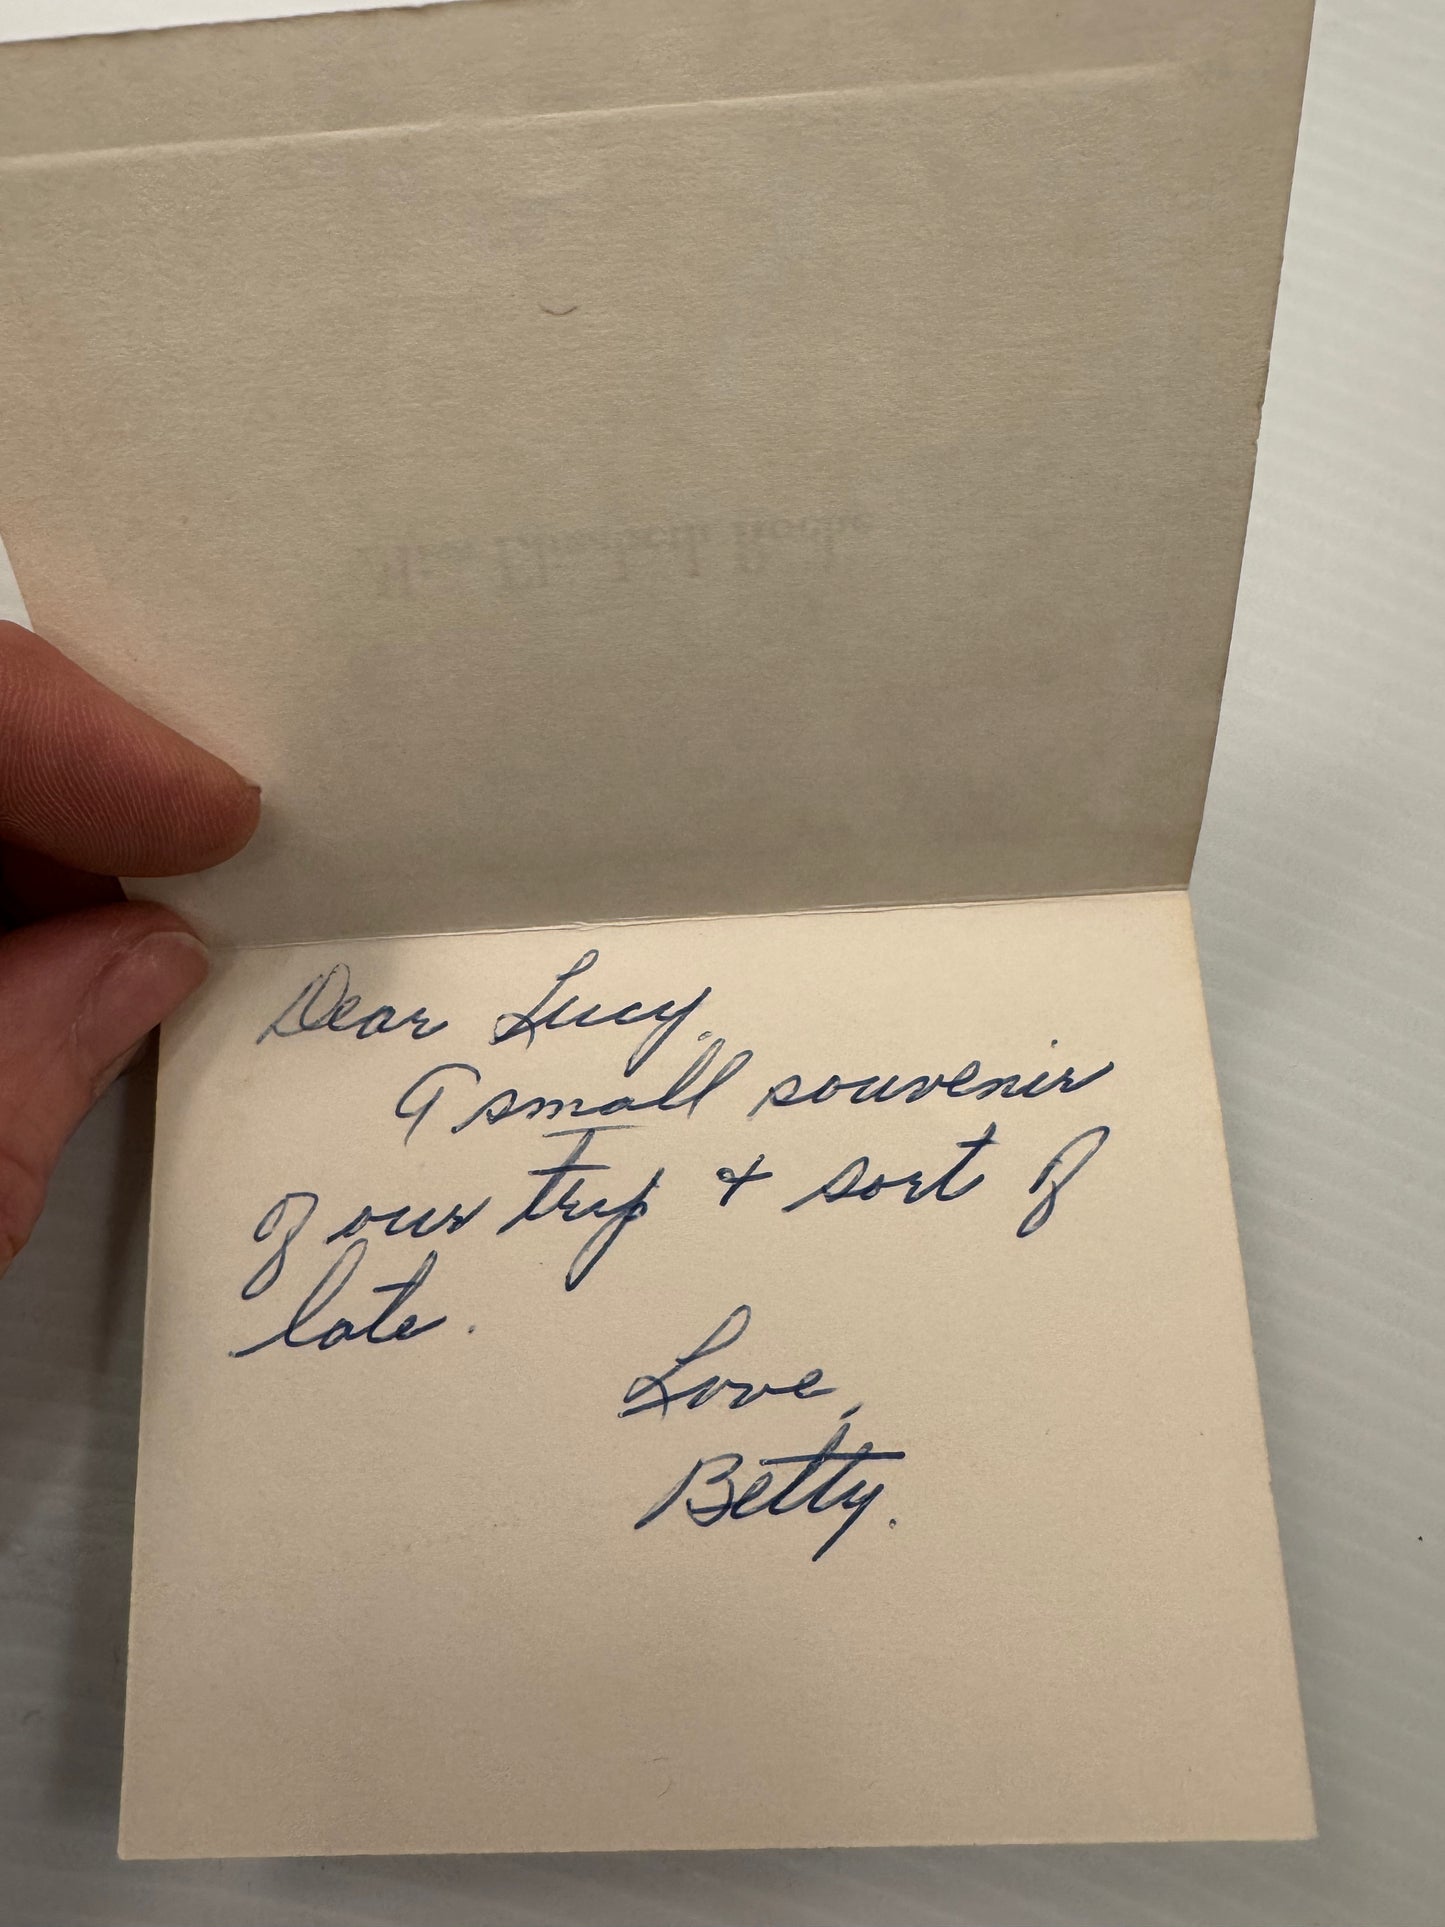 Dear Lucy,
A small souvenir
of our trip & sort of
late.
Love,
Betty.